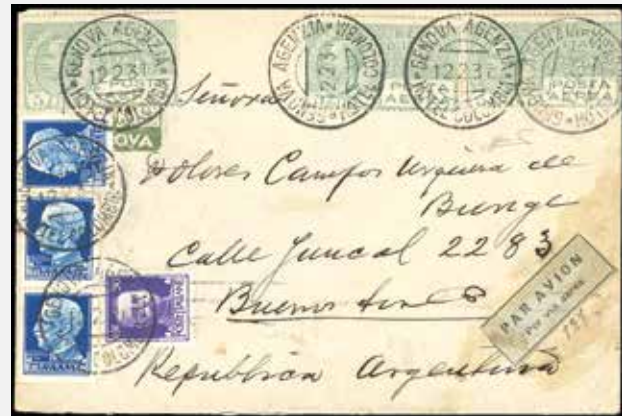 GENOVA AGENZIA HOTEL COLOMBIA
12.2.31
GENOVA AGENZIA HOTEL COLOMBIA
GENOVA AGENZIA HOTEL COLOMBIA
12.2.31
GENOVA AGENZIA HOTEL COLOMBIA
POSTA
AEREA
OVA
Señora
Dolores Campos Urquiza de
Bunge
Calle Juncal 2283
Buenos Aires
Republica Argentina
PAR AVION
Por vía aérea